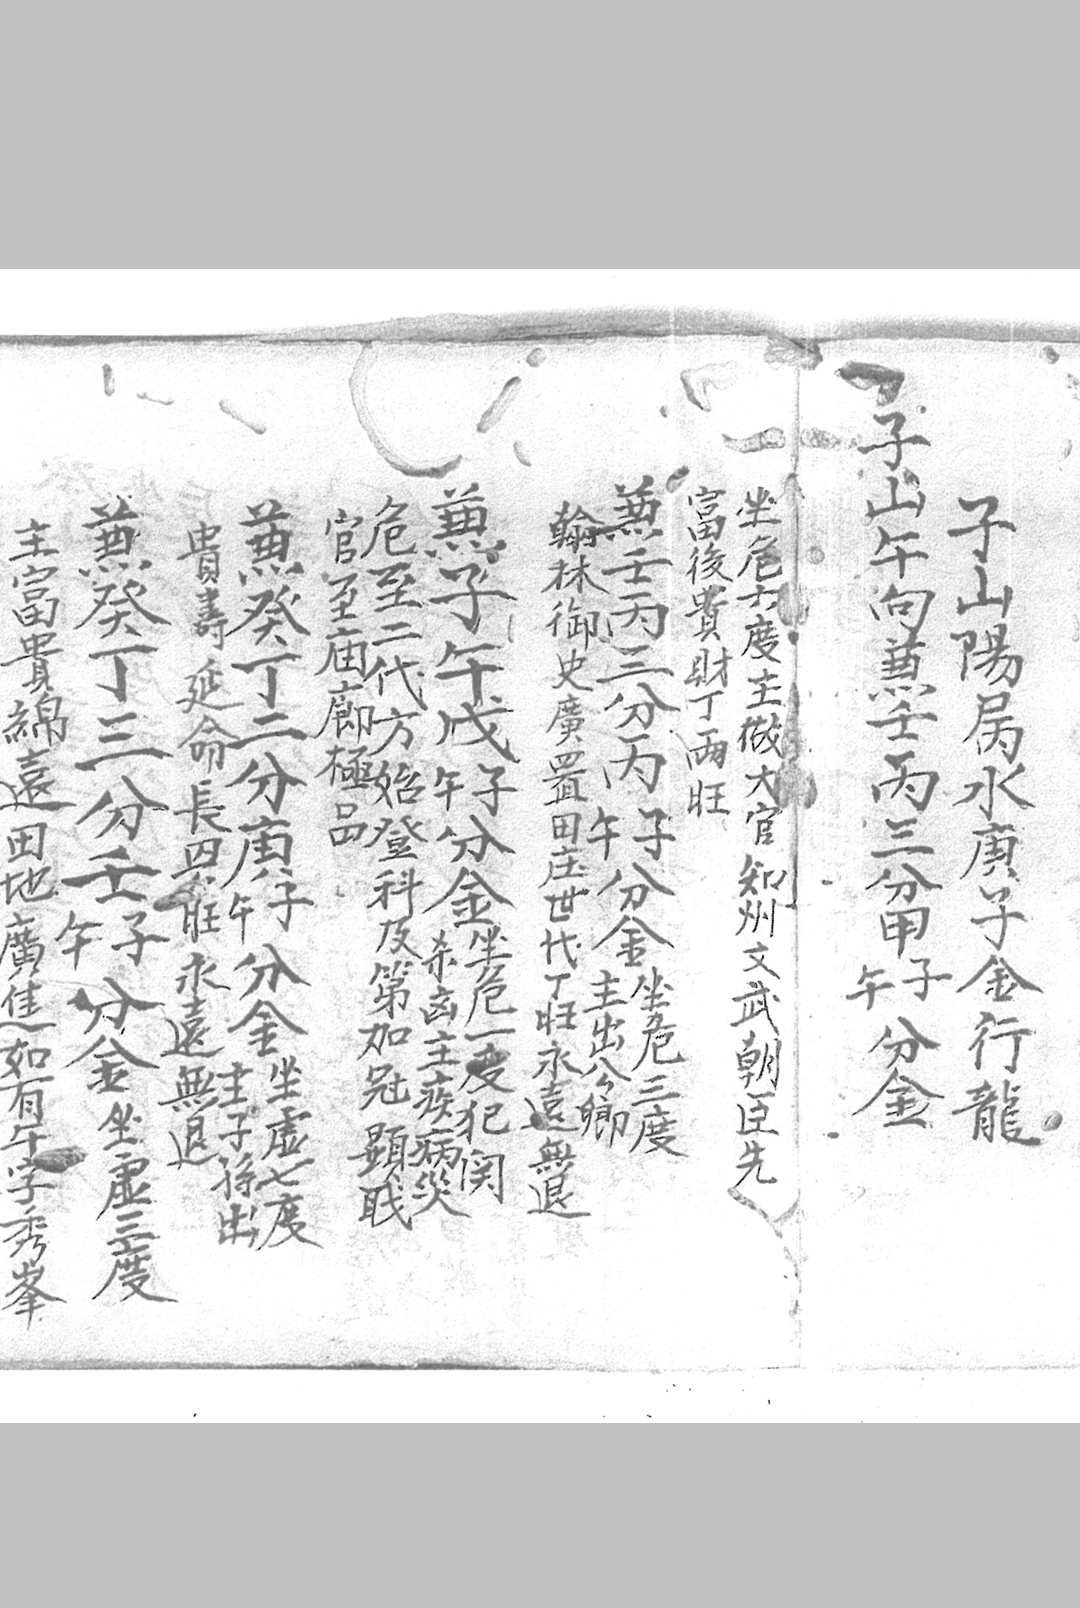 子山陽局水庚子金行龍
子山午向兼壬丙三分甲子午分金
坐危六度主做大官知州文武朝臣先
富後貴財丁兩旺
兼壬丙三分丙子午分金坐危三度
主出公卿
翰林御史廣置田庄世代丁旺永遠無退
兼子午戊子午分金坐危一度犯関
杀凶主疾病災
危至二代方始登科及第加冠顕戝
官至庙廊極品
兼癸丁二分庚子午分金坐虚七度
主子孫出
貴壽延命長興旺永遠無退
兼癸丁三分壬子午分金坐虚三度
主富貴綿遠田地廣進如有午字秀峯